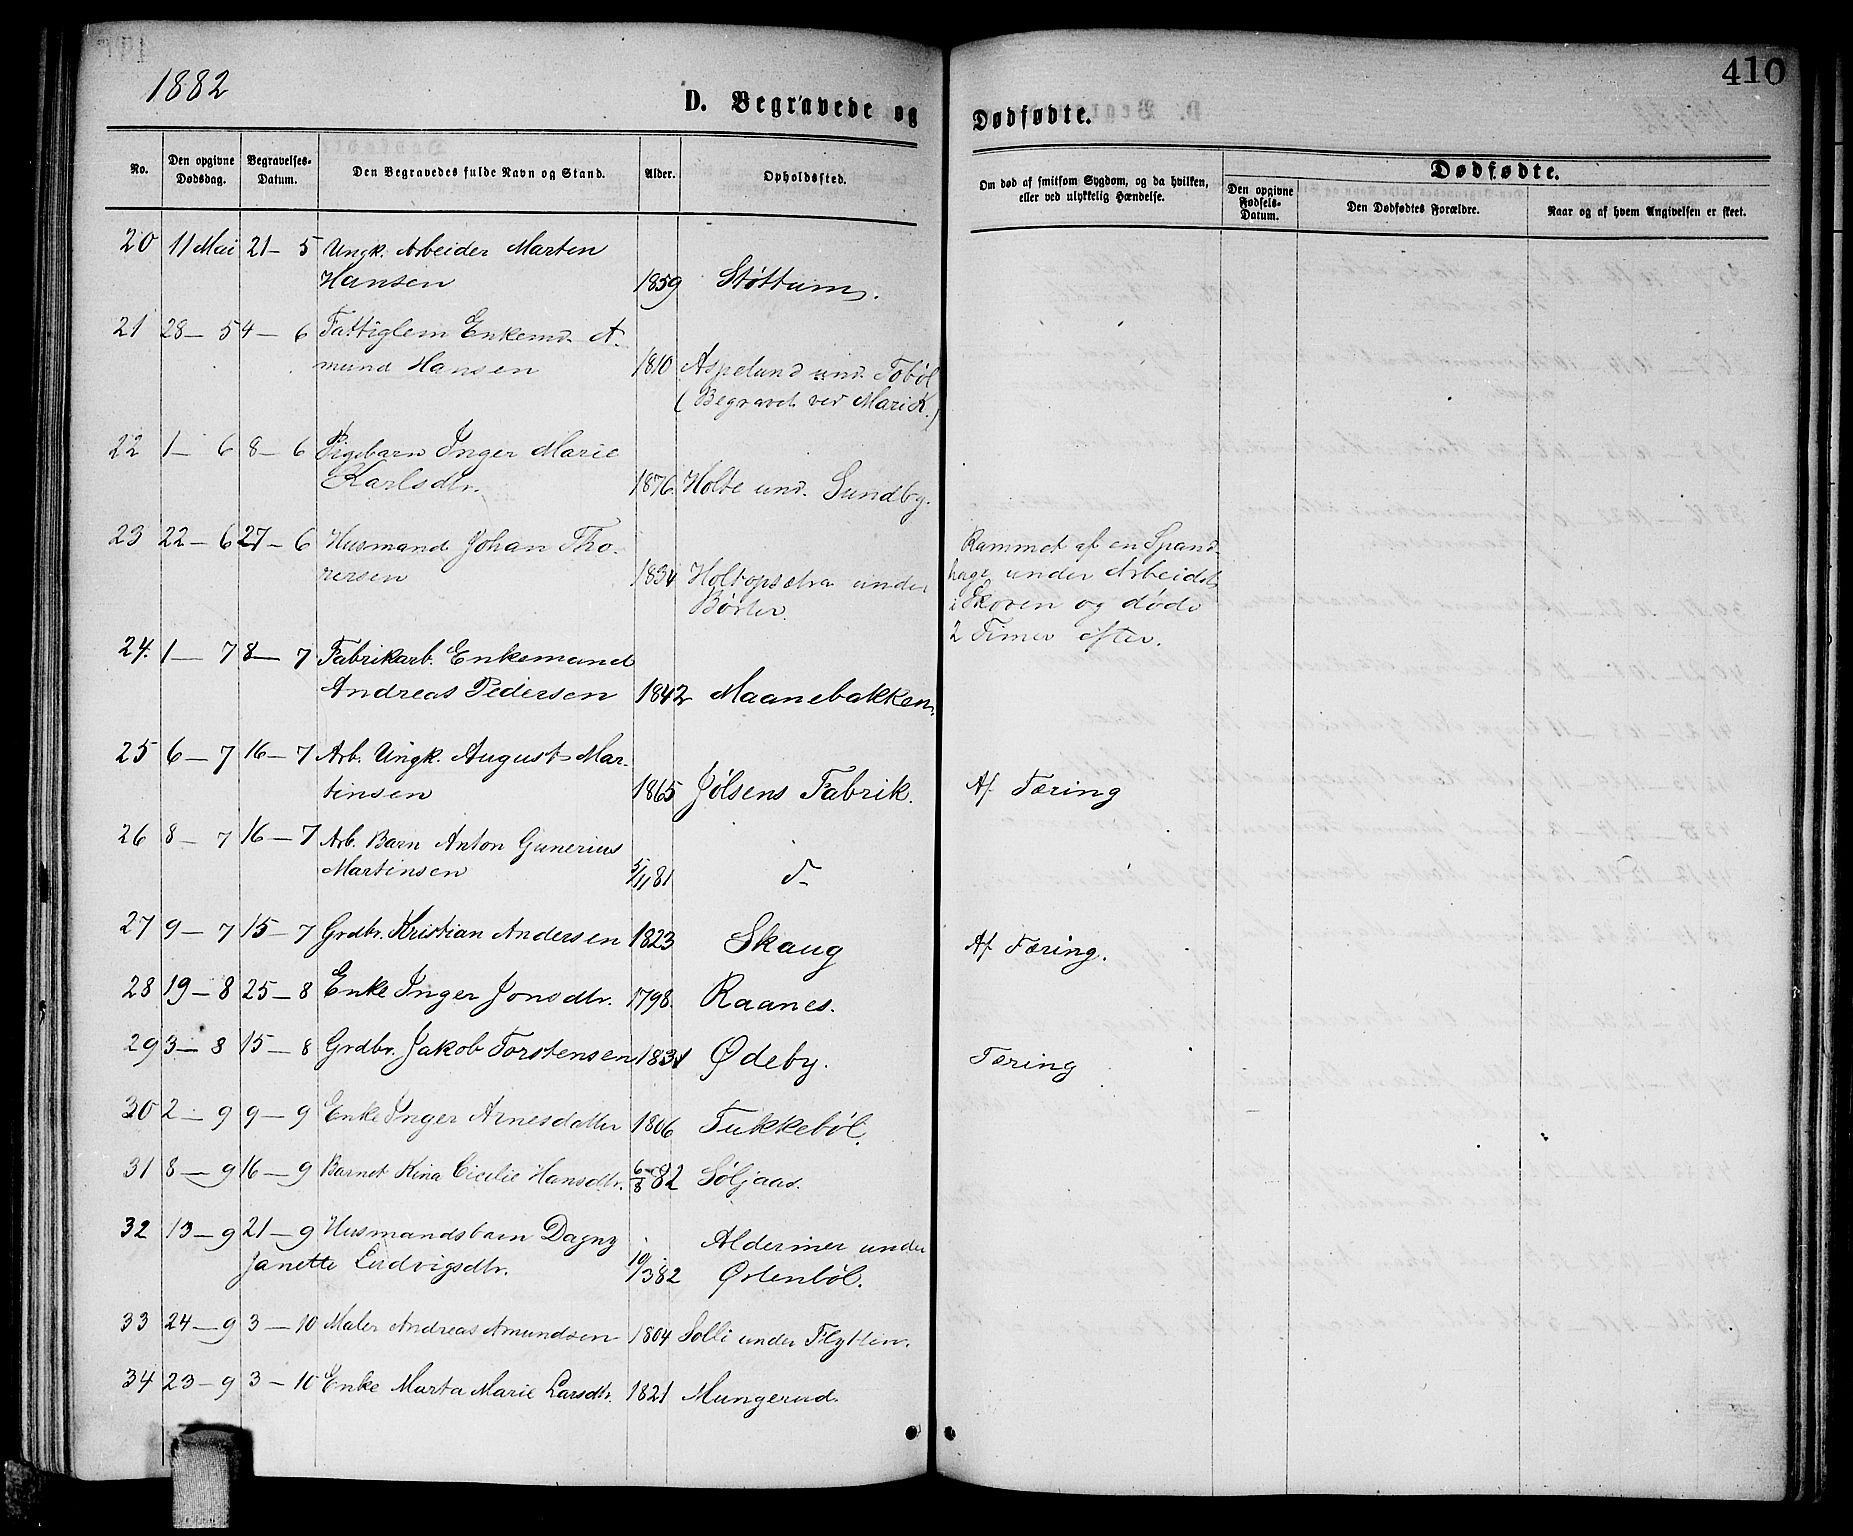 1882
410
D. Begravede og Dødfødte.
No.
Den opgivne Dødsdag.
Begravelses-Datum.
Den Begravedes fulde Navn og Stand.
Alder.
Opholdssted.
Om død af smitsom Sygdom, og da hvilken, eller ved ulykkelig Hændelse.
Dødfødte.
Den opgivne Fødsels-Datum.
Den Dødfødtes Forældre.
Naar og af hvem Angivelsen er skeet.
20 11 Mai 21 – 5 Ungk. Arbeider Marten
Hansen 1859 Støttum.
21 28 – 5 4 – 6 Fattiglem Enkemd. A-
mund Hansen 1810 Aspelund und. Tobøl
(Begravet ved Mari K.)
22 1 – 6 8 – 6 Pigebarn Inger Marie
Karlsdtr. 1876 Holte und. Sundby.
23 22 – 6 27 – 6 Husmand Johan Tho-
resen 1834 Holtopsætra under
Børter.
Rammet af en Spand-
hage under Arbeidet
i Skoven og døde
2 Timer efter.
24. 1 – 7 8 – 7 Fabrikarb. Enkemand
Andreas Pedersen 1842 Maanebakken.
25 6 – 7 16 – 7 Arb. Ungk. August Mar-
tinsen 1865 Jølsens Fabrik. Af Tæring
26 8 – 7 16 – 7 Arb. Barn Anton Gunerius
Martinsen 5/11 81 d–
27 9 – 7 15 – 7 Grdbr. Kristian Andersen 1823 Skaug Af Tæring.
28 19 – 8 25 – 8 Enke Inger Jonsdtr. 1798 Raanes.
29 3 – 8 15 – 8 Grdbr. Jakob Torstensen 1831 Ødeby. Tæring
30 2 – 9 9 – 9 Enke Inger Arnesdatter 1806 Tukkebøl.
31 8 – 9 16 – 9 Barnet Kina Cicilie Hansdtr. 6/8 82 Søljaas.
32 13 – 9 21 – 9 Husmandsbarn Dagny
Janette Ludvigsdtr. 10/3 82 Aldermer under
Ørtenbøl.
33 24 – 9 3 – 10 Maler Andreas Amundsen 1804 Solli under Flytten.
34 23 – 9 3 – 10 Enke Marta Marie Larsdtr. 1821 Mungerud.